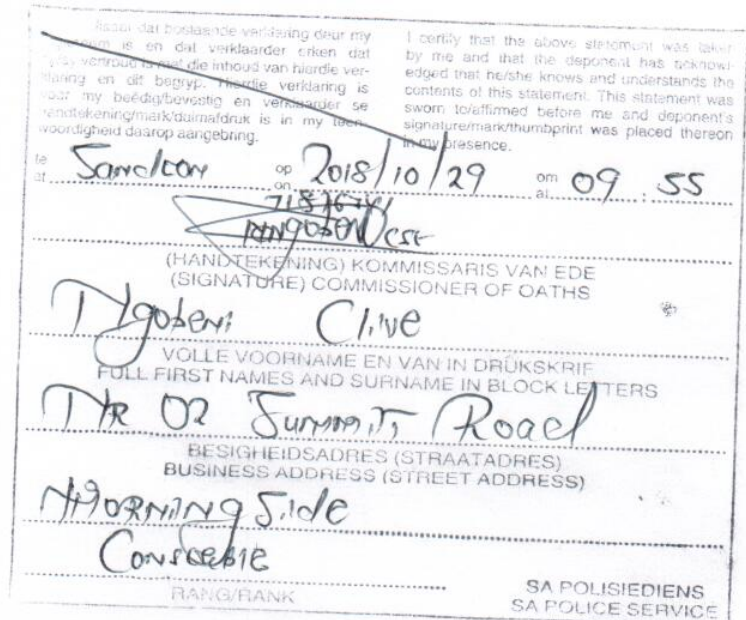 dat bostaande verklaring deur my
is en dat verklaarder erken dat
vertroud is met die inhoud van hierdie ver-
klaring en dit begryp. Hierdie verklaring is
voor my beëdig/bevestig en verklaarder se
handtekening/mark/duimafdruk is in my teen-
woordigheid daarop aangebring.
I certify that the above statement was taken
by me and that the deponent has acknowl-
edged that he/she knows and understands the
contents of this statement. This statement was
sworn to/affirmed before me and deponent's
signature/mark/thumbprint was placed thereon
in my presence.
te Sandton op 2018/10/29 om 09.55
at on at
CST
(HANDTEKENING) KOMMISSARIS VAN EDE
(SIGNATURE) COMMISSIONER OF OATHS
Ngobeni Clive
VOLLE VOORNAME EN VAN IN DRUKSKRIF
FULL FIRST NAMES AND SURNAME IN BLOCK LETTERS
NR 02 Summit Road
BESIGHEIDSADRES (STRAATADRES)
BUSINESS ADDRESS (STREET ADDRESS)
MORNINGSide
Constable
RANG/RANK
SA POLISIEDIENS
SA POLICE SERVICE